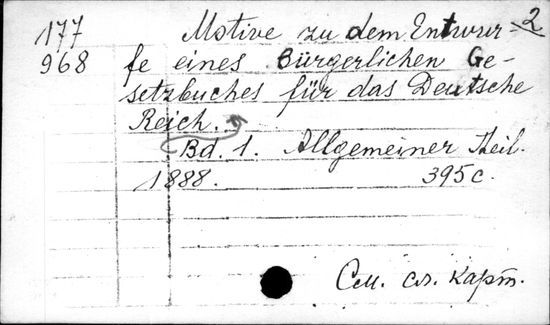 177 Motive zu dem Entwur- 2
968 fe eines Bürgerlichen Ge-
setzbuches für das Deutsche
Reich.
Bd. 1. Allgemeiner Theil.
1888. 395 с.
См. сл. карт.